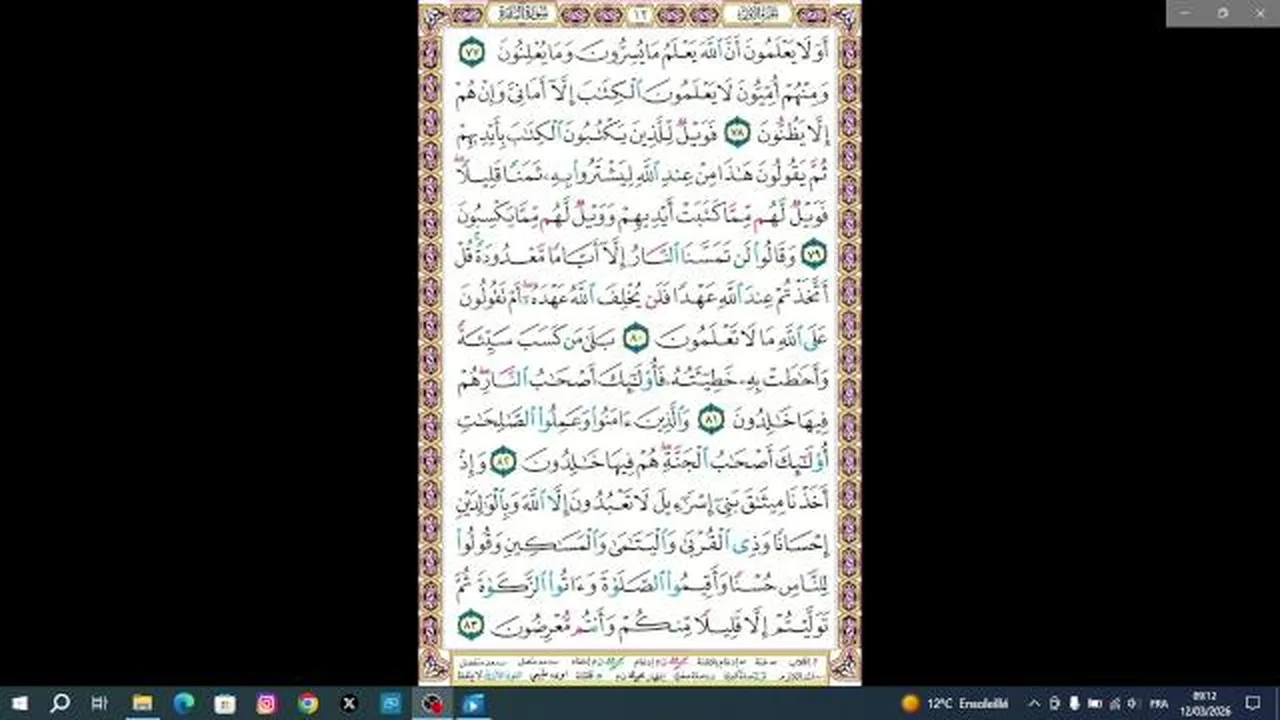 سورة البقرة ١٢ الجزء الأول
أَوَلَا يَعْلَمُونَ أَنَّ ٱللَّهَ يَعْلَمُ مَا يُسِرُّونَ وَمَا يُعْلِنُونَ ٧٧
وَمِنْهُمْ أُمِّيُّونَ لَا يَعْلَمُونَ ٱلْكِتَٰبَ إِلَّآ أَمَانِىَّ وَإِنْ هُمْ
إِلَّا يَظُنُّونَ ٧٨ فَوَيْلٌ لِّلَّذِينَ يَكْتُبُونَ ٱلْكِتَٰبَ بِأَيْدِيهِمْ
ثُمَّ يَقُولُونَ هَٰذَا مِنْ عِندِ ٱللَّهِ لِيَشْتَرُوا۟ بِهِۦ ثَمَنًا قَلِيلًا ۖ
فَوَيْلٌ لَّهُم مِّمَّا كَتَبَتْ أَيْدِيهِمْ وَوَيْلٌ لَّهُم مِّمَّا يَكْسِبُونَ
٧٩ وَقَالُوا۟ لَن تَمَسَّنَا ٱلنَّارُ إِلَّآ أَيَّامًا مَّعْدُودَةً ۚ قُلْ
أَتَّخَذْتُمْ عِندَ ٱللَّهِ عَهْدًا فَلَن يُخْلِفَ ٱللَّهُ عَهْدَهُۥٓ ۖ أَمْ تَقُولُونَ
عَلَى ٱللَّهِ مَا لَا تَعْلَمُونَ ٨٠ بَلَىٰ مَن كَسَبَ سَيِّئَةً
وَأَحَٰطَتْ بِهِۦ خَطِيٓـَٔتُهُۥ فَأُو۟لَٰٓئِكَ أَصْحَٰبُ ٱلنَّارِ ۖ هُمْ
فِيهَا خَٰلِدُونَ ٨١ وَٱلَّذِينَ ءَامَنُوا۟ وَعَمِلُوا۟ ٱلصَّٰلِحَٰتِ
أُو۟لَٰٓئِكَ أَصْحَٰبُ ٱلْجَنَّةِ ۖ هُمْ فِيهَا خَٰلِدُونَ ٨٢ وَإِذْ
أَخَذْنَا مِيثَٰقَ بَنِىٓ إِسْرَٰٓءِيلَ لَا تَعْبُدُونَ إِلَّا ٱللَّهَ وَبِٱلْوَٰلِدَيْنِ
إِحْسَانًا وَذِى ٱلْقُرْبَىٰ وَٱلْيَتَٰمَىٰ وَٱلْمَسَٰكِينِ وَقُولُوا۟
لِلنَّاسِ حُسْنًا وَأَقِيمُوا۟ ٱلصَّلَوٰةَ وَءَاتُوا۟ ٱلزَّكَوٰةَ ثُمَّ
تَوَلَّيْتُمْ إِلَّا قَلِيلًا مِّنكُمْ وَأَنتُم مُّعْرِضُونَ ٨٣
12°C Ensoleillé FRA 09:12
12/03/2026